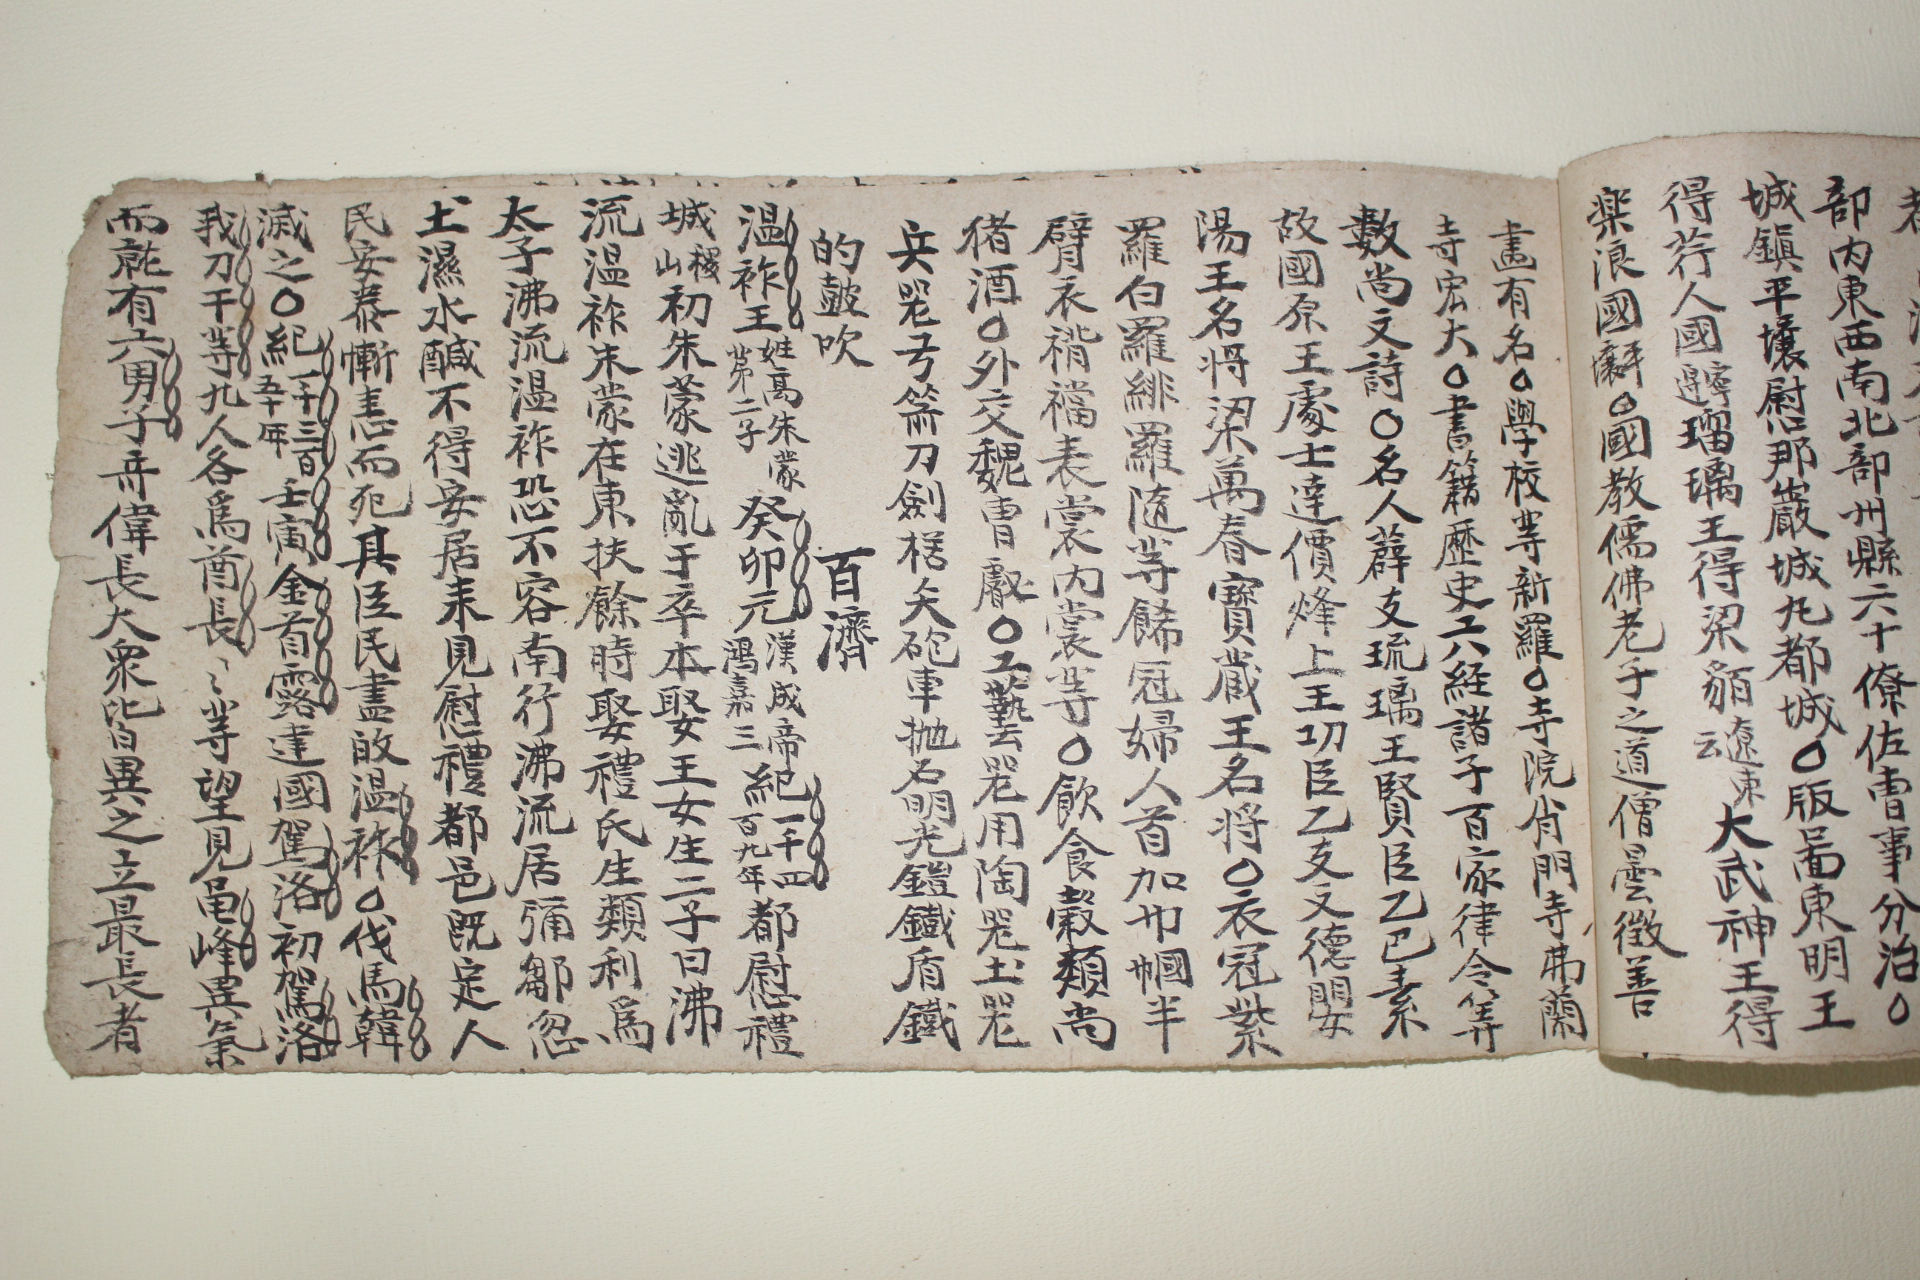 部內東西南北部州縣六十僚佐曹事分治〇
城鎮平壤慰那巖城丸都城〇版圖東明王
得荇人國 瑠璃王得梁貊遼東云大武神王得
樂浪國 〇國教儒佛老子之道僧曇徵善
畫有名〇學校等新羅〇寺院肖門寺弗蘭
寺宏大〇書籍歷史六経諸子百家律令等
數尚文詩〇名人薛支琉璃王賢臣乙巴素
故國原王處士達價烽上王功臣乙支文德嬰
陽王名將梁萬春寶藏王名將〇衣冠紫
羅白羅緋羅隨等餙冠婦人首加巾幗半
臂衣褙襠表裳內裳等〇飲食穀類尚
猪酒〇外交魏曹 〇工藝器用陶器土器
兵器弓箭刀劍 矢砲車抛石明光鎧鐵盾鐵
的皷吹
百濟
溫祚王姓高朱蒙第二子癸卯元漢成帝鴻嘉三紀一千四百九年都慰禮
城稷山初朱蒙逃亂于卒本娶王女生二子曰沸
流溫祚朱蒙在東扶餘時娶禮氏生類利爲
太子沸流溫祚恐不容南行沸流居彌鄒忽
土濕水鹹不得安居來見慰禮都邑既定人
民安泰慚恚而死其臣民盡敀溫祚〇伐馬韓
滅之〇紀一千三百五十年壬寅金首露建國駕洛初駕洛
我刀干等九人各爲酋長〻等望見龜峰異氣
而就有六男子奇偉長大衆皆異之立最長者